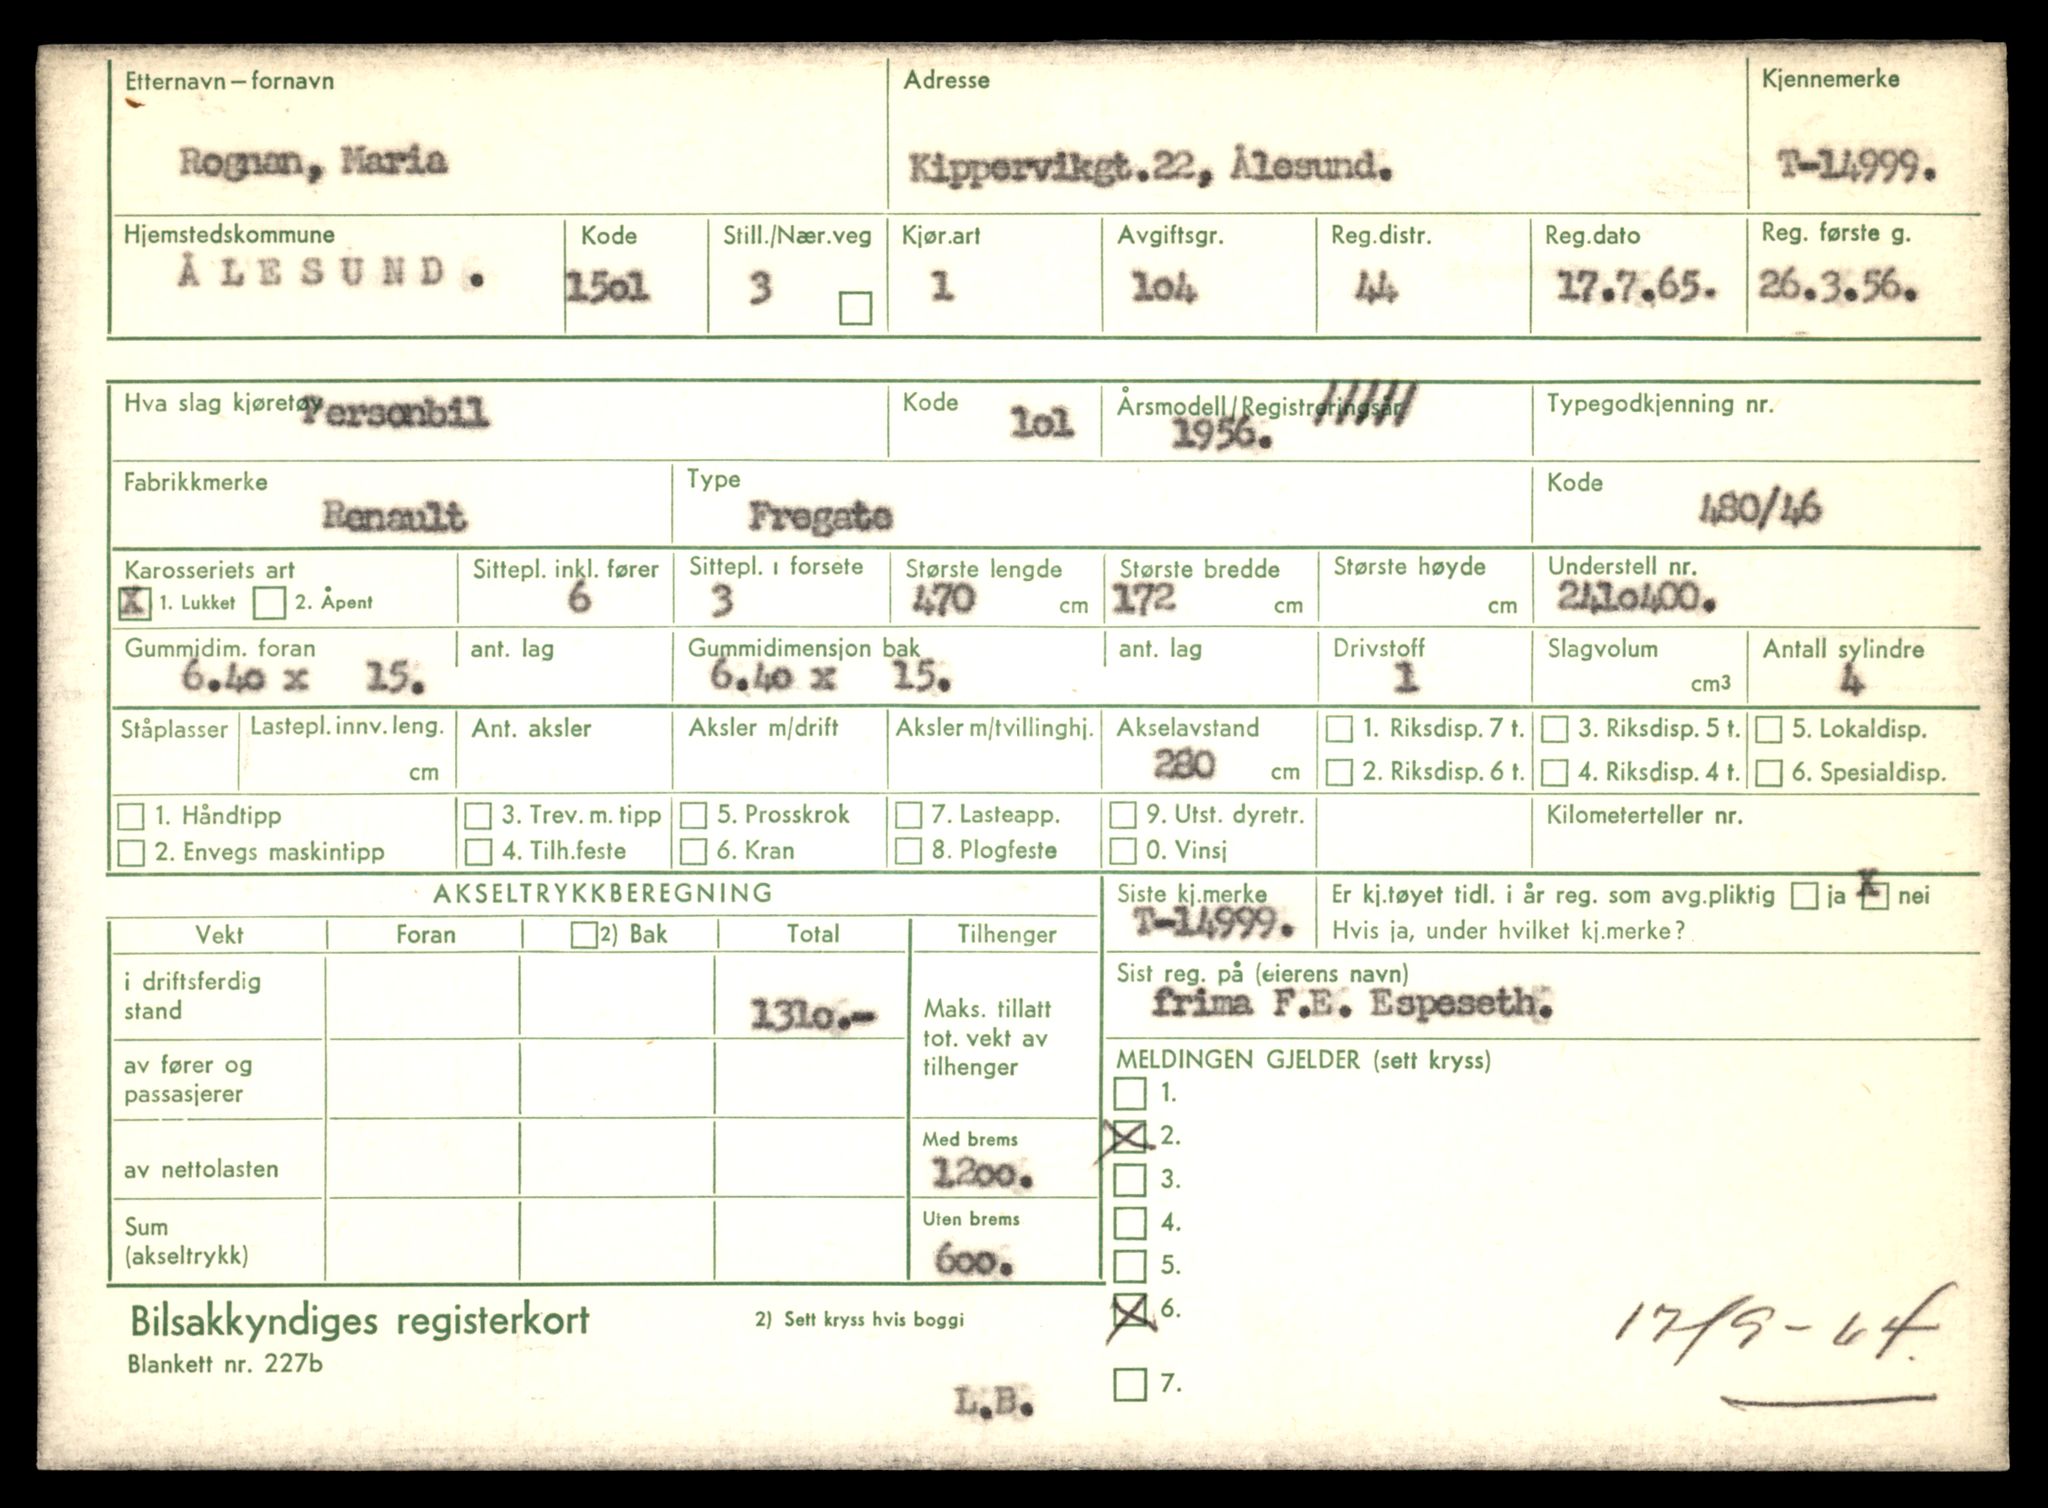 Etternavn – fornavn Adresse Kjennemerke
Rognan, Maria Kippervikgt.22, Ålesund. T-14999.
Hjemstedskommune Kode Still./Nær.veg Kjør.art Avgiftsgr. Reg.distr. Reg.dato Reg. første g.
ÅLESUND. 15o1 3 1 1o4 44 17.7.65. 26.3.56.
Hva slag kjøretøy Personbil Kode 1o1 Årsmodell/Registreringsår 1956. Typegodkjenning nr.
Fabrikkmerke Type Kode
Renault Fregate 480/46
Karosseriets art Sittepl. inkl. fører Sittepl. i forsete Største lengde Største bredde Største høyde Understell nr.
X 1. Lukket 2. Åpent 6 3 470 cm 172 cm cm 241o400.
Gummidim. foran ant. lag Gummidimensjon bak ant. lag Drivstoff Slagvolum Antall sylindre
6.40 x 15. 6.40 x 15. 1 cm3 4
Ståplasser Lastepl. innv. leng. Ant. aksler Aksler m/drift Aksler m/tvillinghj. Akselavstand 1. Riksdisp. 7 t. 3. Riksdisp. 5 t. 5. Lokaldisp.
cm 280 cm 2. Riksdisp. 6 t. 4. Riksdisp. 4 t. 6. Spesialdisp.
1. Håndtipp 3. Trev. m. tipp 5. Prosskrok 7. Lasteapp. 9. Utst. dyretr. Kilometerteller nr.
2. Envegs maskintipp 4. Tilh.feste 6. Kran 8. Plogfeste 0. Vinsj
AKSELTRYKKBEREGNING Siste kj.merke Er kj.tøyet tidl. i år reg. som avg.pliktig ja X nei
T-14999. Hvis ja, under hvilket kj.merke?
Vekt Foran 2) Bak Total Tilhenger
Sist reg. på (eierens navn)
frima F.E. Espeseth.
i driftsferdig stand 131o.-
Maks. tillatt tot. vekt av tilhenger
av fører og passasjerer
MELDINGEN GJELDER (sett kryss)
1.
X 2.
3.
4.
5.
X 6.
7.
av nettolasten Med brems
12oo.
Sum (akseltrykk) Uten brems
6oo.
Bilsakkyndiges registerkort 2) Sett kryss hvis boggi
Blankett nr. 227b
L.B.